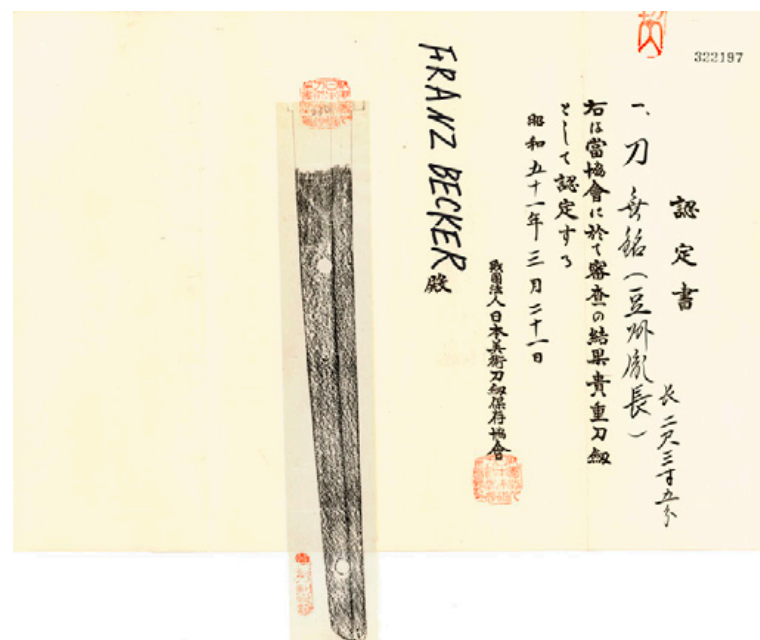 322197
認定書
一、刀 無銘(豆州胤長)
長二尺三寸五分
右は當協會に於て審査の結果貴重刀劔
として認定する
昭和五十一年三月二十一日
財團法人日本美術刀劔保存協會
FRANZ BECKER 殿